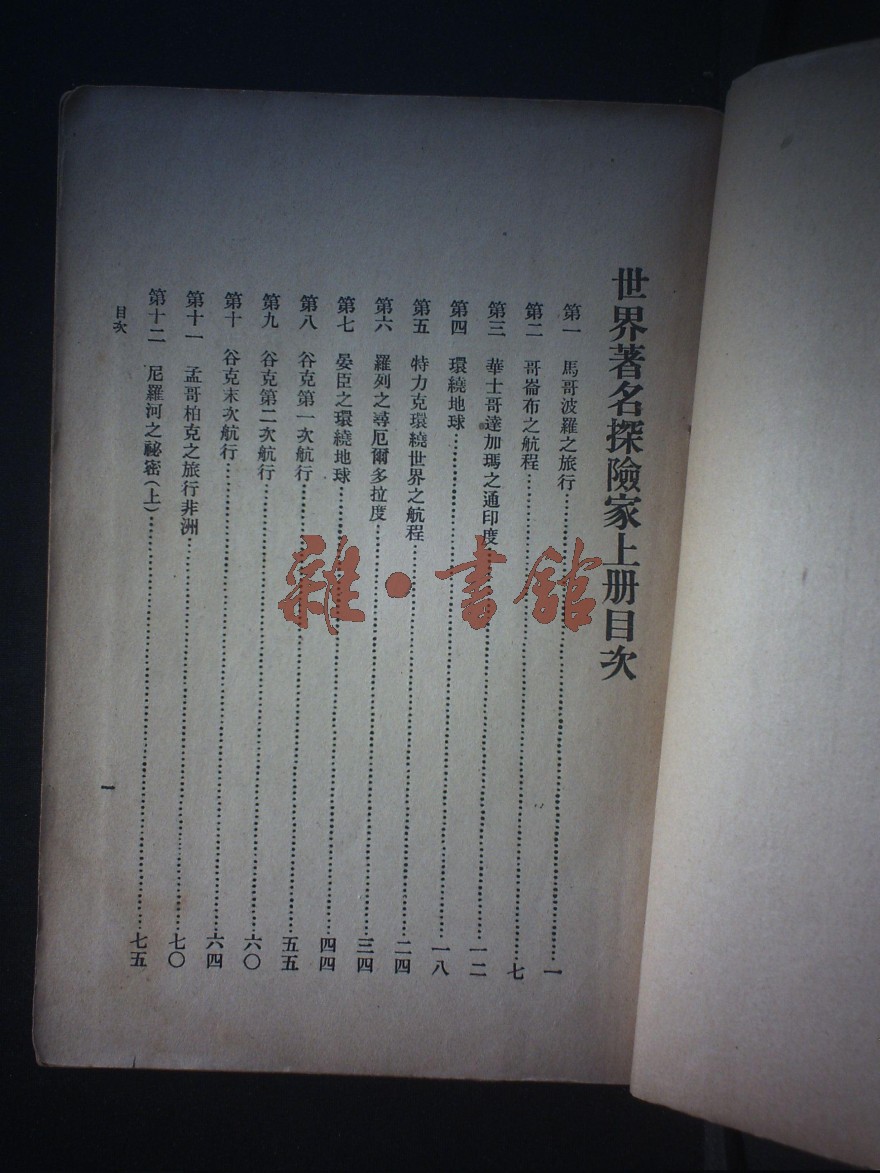 世界著名探險家上册目次
第一 馬哥波羅之旅行……一
第二 哥崙布之航程……七
第三 華士哥達加瑪之通印度……一二
第四 環繞地球……一八
第五 特力克環繞世界之航程……二四
第六 羅列之尋厄爾多拉度……三四
第七 晏臣之環繞地球……四四
第八 谷克第一次航行……五五
第九 谷克第二次航行……六〇
第十 谷克末次航行……六四
第十一 孟哥柏克之旅行非洲……七〇
第十二 尼羅河之祕密(上)……七五
目次
一
雜·書館